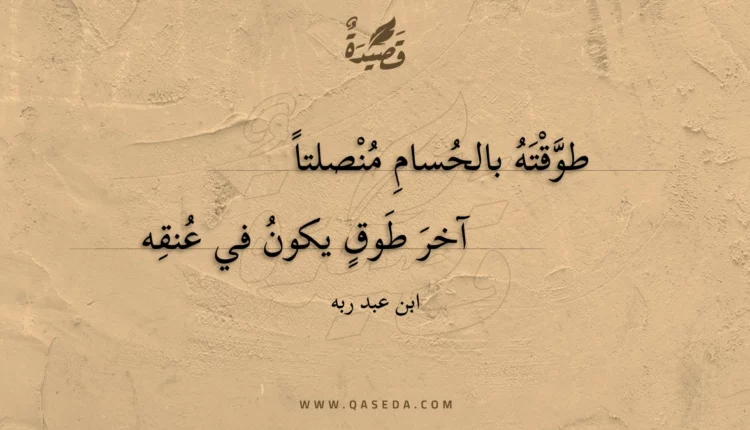 قَصِيدَةٌ
طوَّقْتَهُ بالحُسامِ مُنْصلتاً
آخرَ طَوقٍ يكونُ في عُنقِه
ابن عبد ربه
WWW.QASEDA.COM